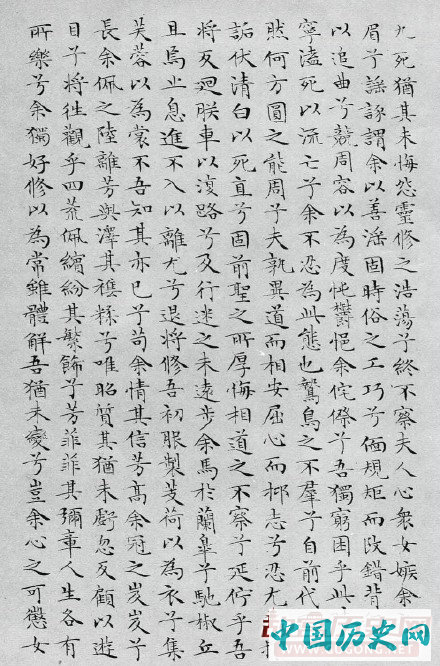 九死猶其未悔怨靈修之浩蕩兮終不察夫人心衆女嫉余
眉兮謠諑謂余以善淫固時俗之工巧兮偭規矩而改錯背
以追曲兮競周容以為度忳鬱悒余侘傺兮吾獨窮困乎此
寧溘死以流亡兮余不忍為此態也鷙鳥之不羣兮自前代
然何方圓之能周兮夫孰異道而相安屈心而抑志兮忍尤
詬伏清白以死直兮固前聖之所厚悔相道之不察兮延佇乎吾
將反廻朕車以復路兮及行迷之未遠步余馬於蘭皋兮馳椒丘
且焉止息進不入以離尤兮退將修吾初服製芰荷以為衣兮集
芙蓉以為裳不吾知其亦已兮苟余情其信芳高余冠之岌岌兮
長余佩之陸離芳與澤其雜糅兮唯昭質其猶未虧忽反顧以遊
目兮將往觀乎四荒佩繽紛其繁飾兮芳菲菲其彌章人生各有
所樂兮余獨好修以為常雖體解吾猶未變兮豈余心之可懲女
中国历史网